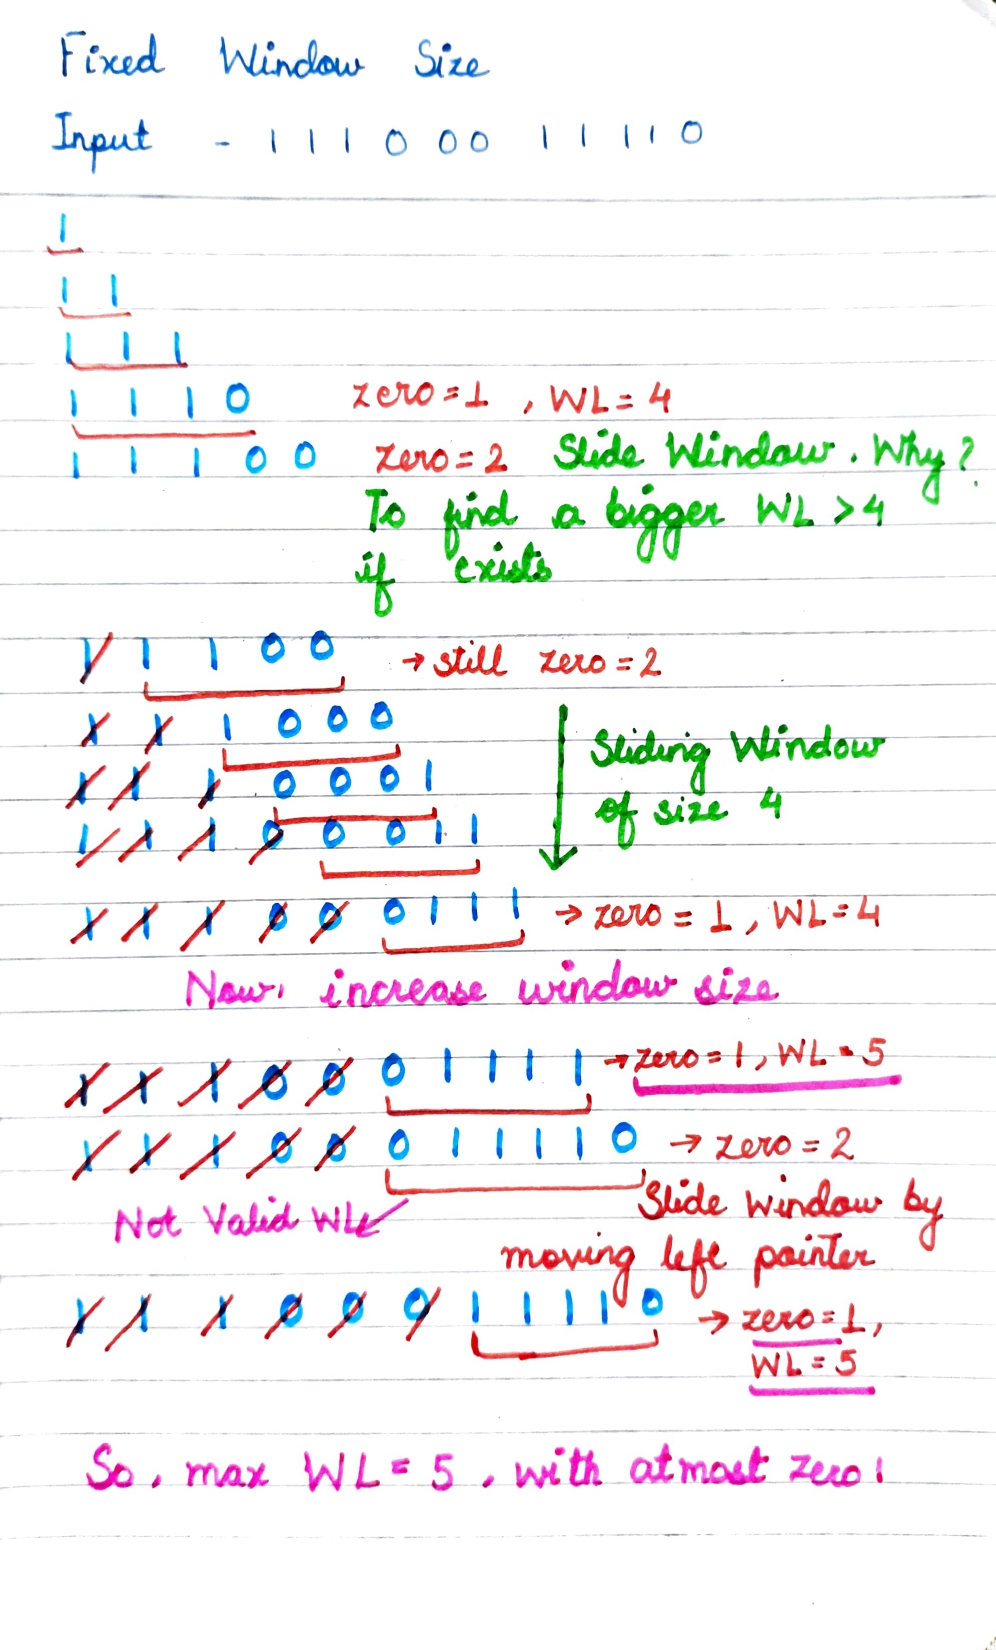 Fixed Window Size
Input - 1 1 1 0 0 0 1 1 1 1 0
1
1 1
1 1 1
1 1 1 0 zero = 1 , WL = 4
1 1 1 0 0 zero = 2 Slide Window. Why?
To find a bigger WL > 4
if exists
1 1 1 0 0 → still zero = 2
1 1 1 0 0 0
1 1 1 0 0 0 1
Sliding Window
of size 4
1 1 1 0 0 0 1 1
1 1 1 0 0 0 1 1 1 → zero = 1, WL = 4
Now, increase window size
1 1 1 0 0 0 1 1 1 1 → zero = 1, WL = 5
1 1 1 0 0 0 1 1 1 1 0 → zero = 2
Not Valid WL
Slide window by
moving left pointer
1 1 1 0 0 0 1 1 1 1 0 → zero = 1,
WL = 5
So, max WL = 5, with atmost zero 1